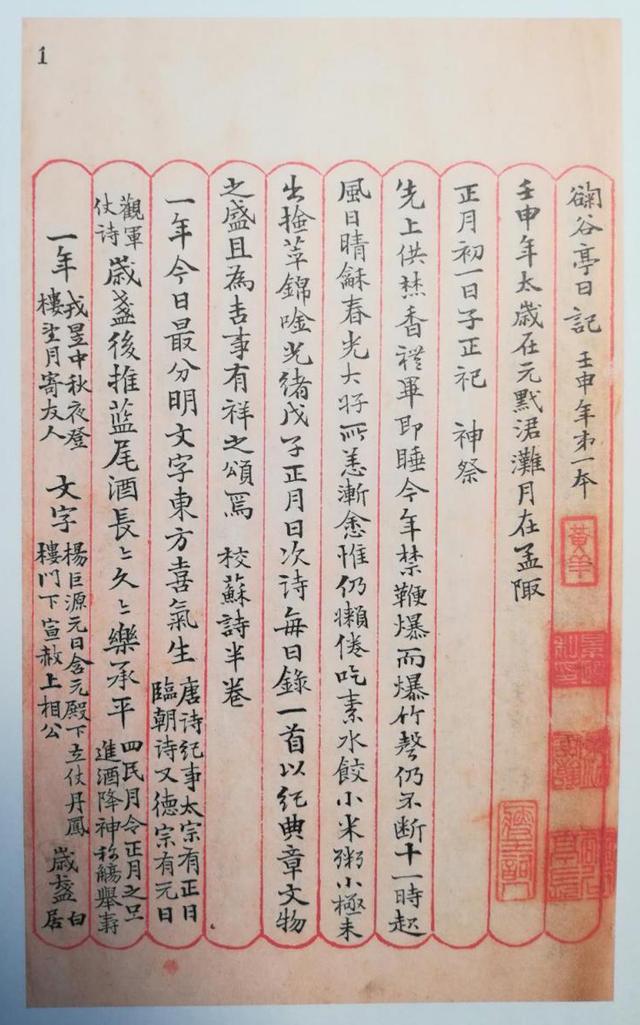 1
谷亭日記 壬申年第一本
黃羊
壬申年太歲在元默涒灘月在孟陬
正月初一日子正祀 神祭
先上供焚香禮畢即睡今年禁鞭爆而爆竹聲仍不斷十一時起
風日晴龢春光大好所恙漸愈惟仍懶倦吃素水餃小米粥小極未
出撿萃錦唫光緒戊子正月日次詩每日錄一首以紀典章文物
之盛且為吉事有祥之頌焉 校蘇詩半卷
一年今日最分明文字東方喜氣生 唐詩紀事太宗有正日臨朝詩又德宗有元日
觀軍仗詩 歲盞後推藍尾酒長〻久〻樂承平 四民月令正月之旦進酒降神称觴舉壽
一年 戎昱中秋夜登樓望月寄友人 文字 楊巨源元日含元殿下立仗丹鳳樓門下宣赦上相公 歲盞 白居